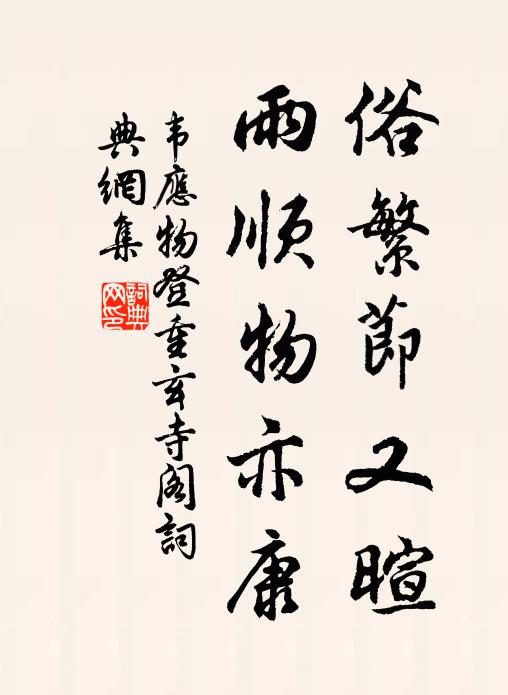 俗繁節又暄
雨順物亦康
韦應物登重玄寺阁詞
典網集
詞典网印